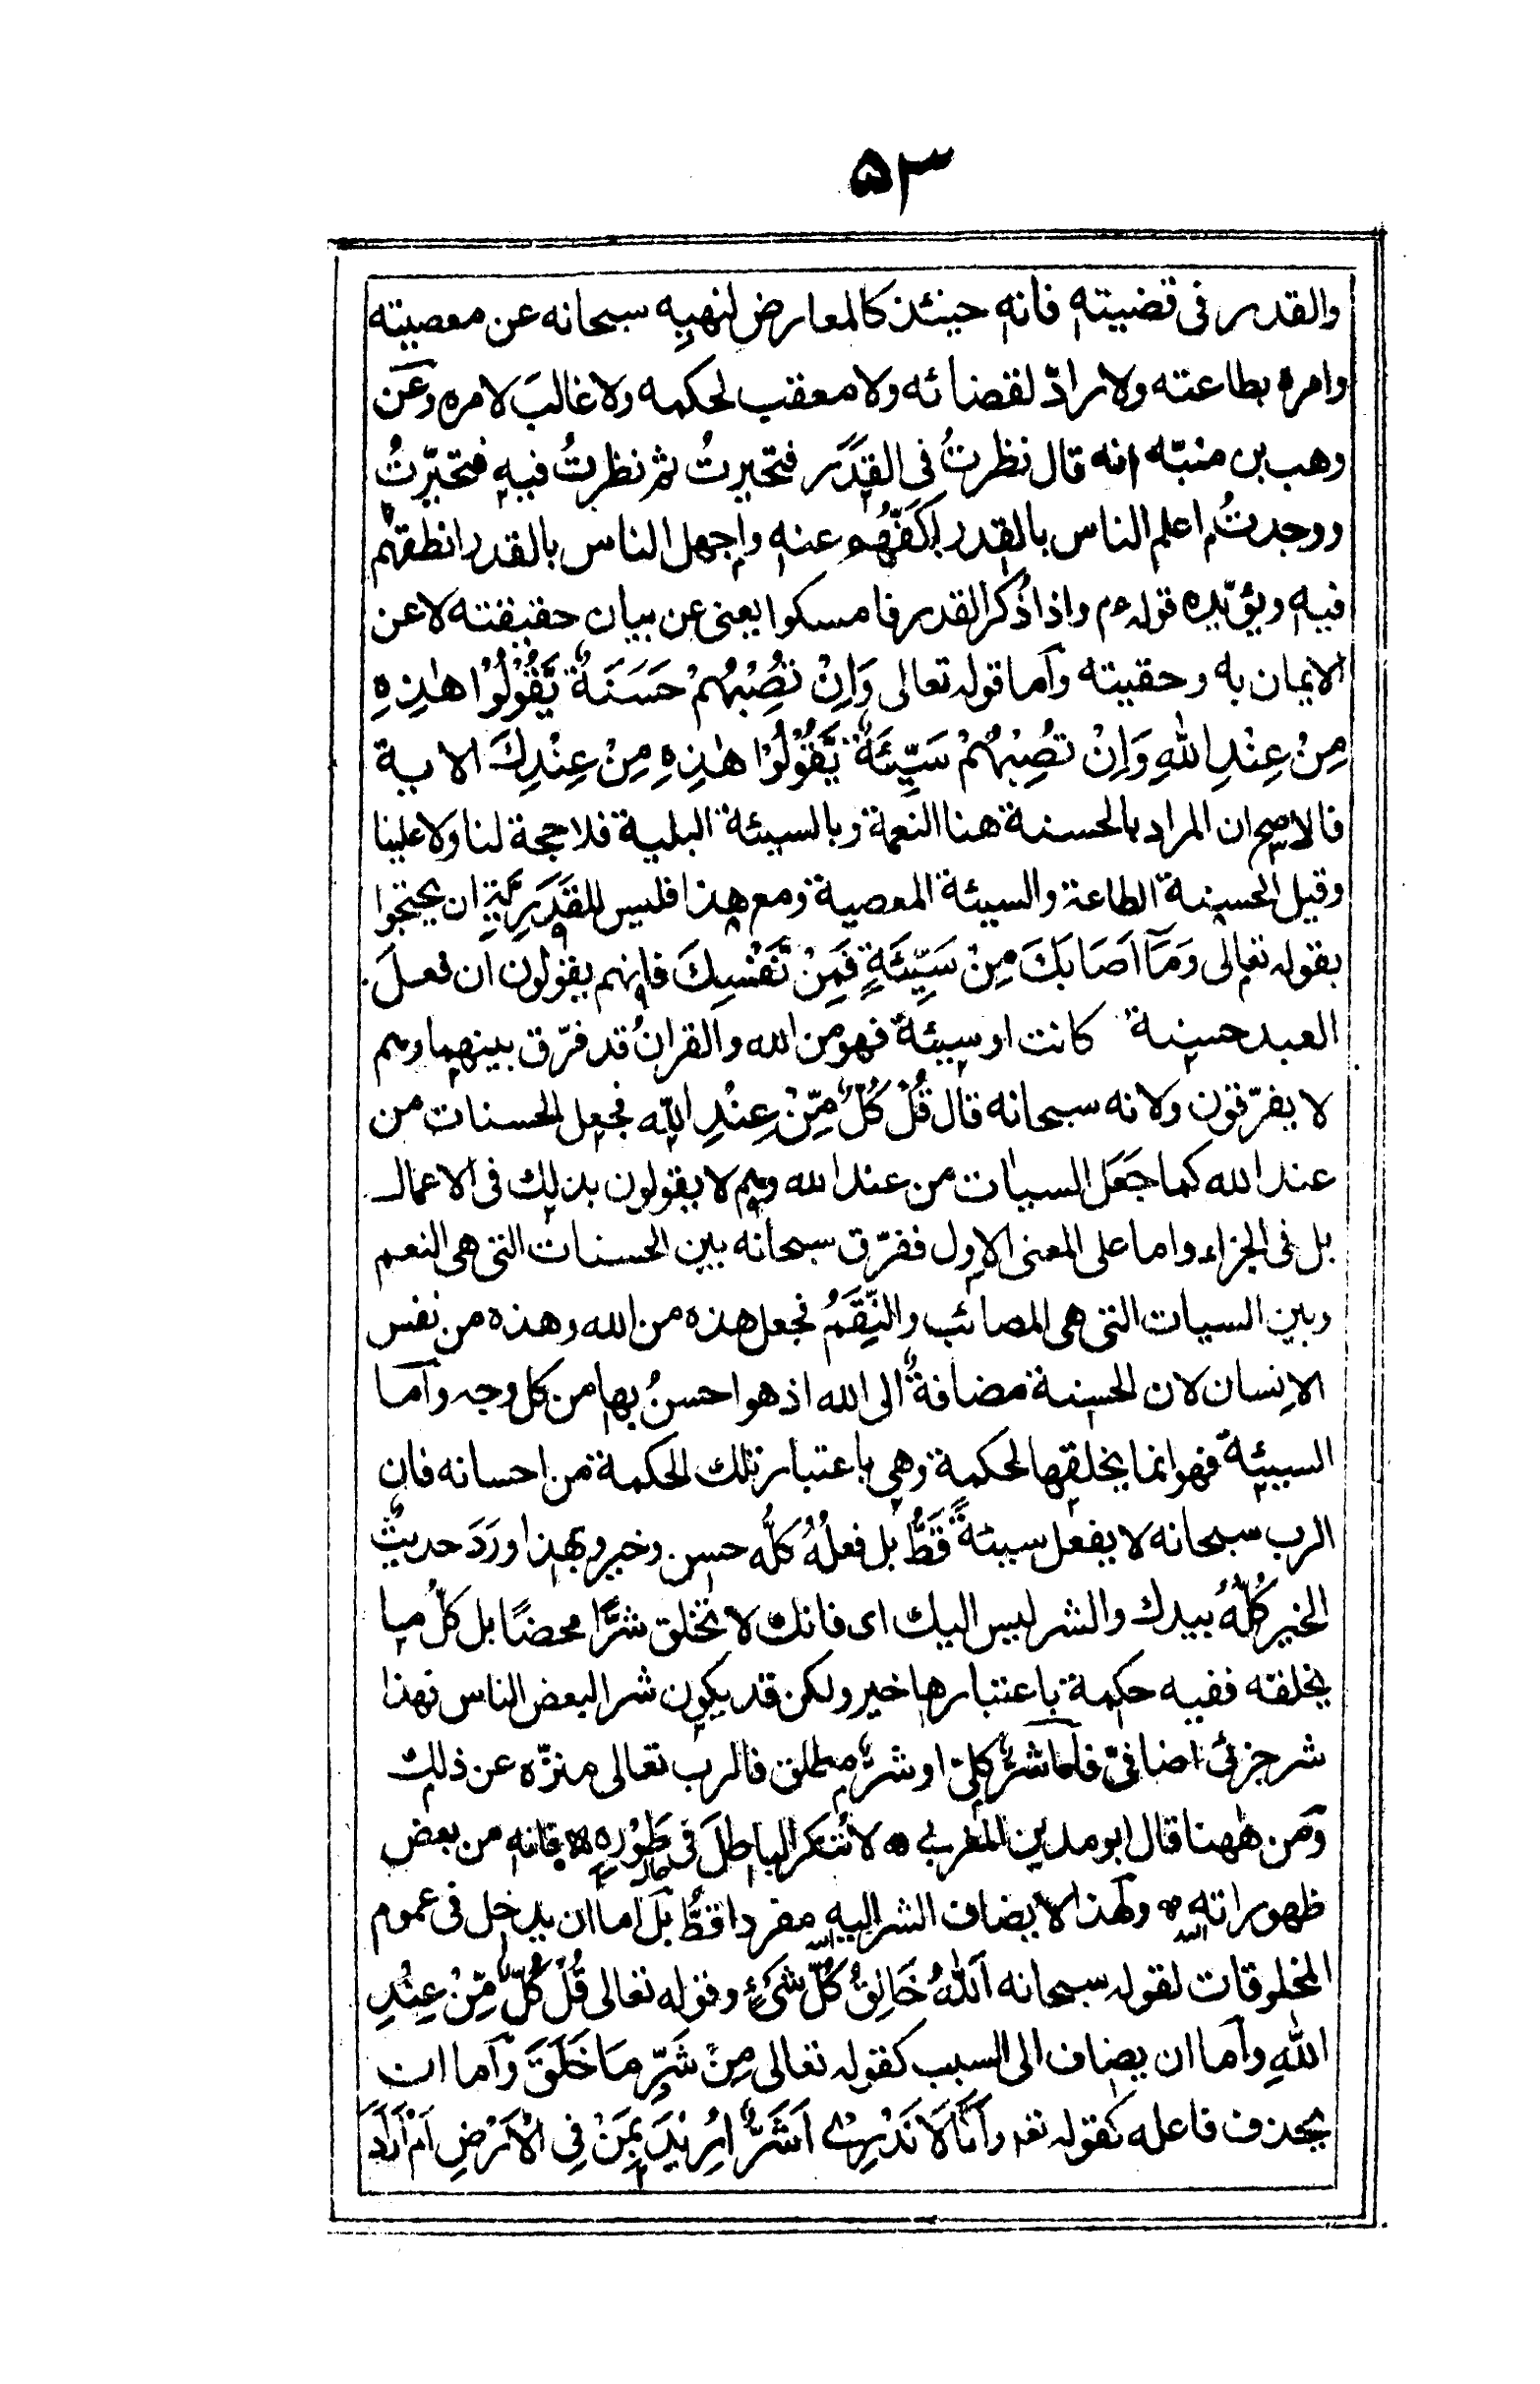 ۵۳
والقدر فی قضیته فانه حینئذ کالمعارض لنهیِه سبحانه عن معصیته
وامره بطاعته ولا رادّ لقضائه ولا معقب لحکمه ولا غالبَ لامره وعن
وهب بن منبّه انه قال نظرتُ فی القدَر فتحیرتُ ثم نظرتُ فیه فتحیّرتُ
ووجدتُ اعلم الناس بالقدر اکَفَّهُم عنه واجهل الناس بالقدر انطقهم
فیه ویؤیّده قوله ۴م واذا ذُکر القدر فامسکوا یعنی عن بیان حقیقته لا عن
الایمان به وحقیته وآما قوله تعالی وَاِنْ تُصِبْهُمْ حَسَنَةٌ یَّقُوْلُوْا هٰذِهِ
مِنْ عِنْدِ اللهِ وَاِنْ تُصِبْهُمْ سَیِّئَةٌ یَّقُوْلُوْا هٰذِهِ مِنْ عِنْدِكَ الایة
فالاصح ان المراد بالحسنة هنا النعمة وبالسیئة البلیة فلا حجة لنا ولا علینا
وقیل الحسنة الطاعة والسیئة المعصیة ومع هذا فلیس للقَدَرِیَّةِ ان یحتجوا
بقوله تعالی وَمَآ اَصَابَكَ مِنْ سَیِّئَةٍ فَمِنْ نَّفْسِكَ فانهم یقولون ان فعلَ
العبد حسنة کانت او سیئة فهو من الله والقرانُ قد فرّق بینهما وهم
لا یفرّقون ولانه سبحانه قال قُلْ کُلٌّ مِّنْ عِنْدِ اللّه فجعل الحسنات من
عند الله کما جَعَل السیات من عند الله وهم لا یقولون بذلك فی الاعمال
بل فی الجزاء واما علی المعنی الاول ففرّق سبحانه بین الحسنات التی هی النعم
وبین السیات التی هی المصائب والنِّقَمُ فجعل هذه من الله وهذه من نفس
الاِنسان لان الحسنة مضافةٌ الی الله اذ هو احسنُ بها من کل وجه وآما
السیئة فهو انما یخلقها لحکمة وهی باعتبار تلك الحکمة من احسانه فان
الرب سبحانه لا یفعل سیئةً قَطُّ بل فعلُهُ کلُّه حسن وخیر وبهذا ورَدَ حدیثٌ
الخیر کُلُّهُ بیدك والشر لیس الیك ای فانك لا تخلق شرًّا محضًا بل کلّ ما
یخلقه ففیه حکمة باعتبارها خیر ولکن قد یکون شرا لبعض الناس فهذا
شر جزئی اضافیّ فاما شرٌّ کلیّ او شرٌّ مطلق فالرب تعالی منزّه عن ذلك
ومن ههنا قال ابو مدین المغربی ۵ لا تنکر الباطلَ فی طَوْرِهِ ۵ فانه من بعض
ظهوراته ۵ ولهذا لا یضاف الشر الیه مفردا قطُّ بل اما ان یدخل فی عموم
المخلوقات لقوله سبحانه اَللهُ خَالِقُ کُلِّ شَیْءٍ وقوله تعالی قُلْ کُلٌّ مِّنْ عِنْدِ
اللهِ وآما ان یضاف الی السبب کقوله تعالی مِنْ شَرِّ مَا خَلَقَ وآما ان
یحذف فاعله کقوله تعہ وَاَنَّا لَا نَدْرِیْ اَشَرٌّ اُرِیْدَ بِمَنْ فِی الْاَرْضِ اَمْ اَرَادَ